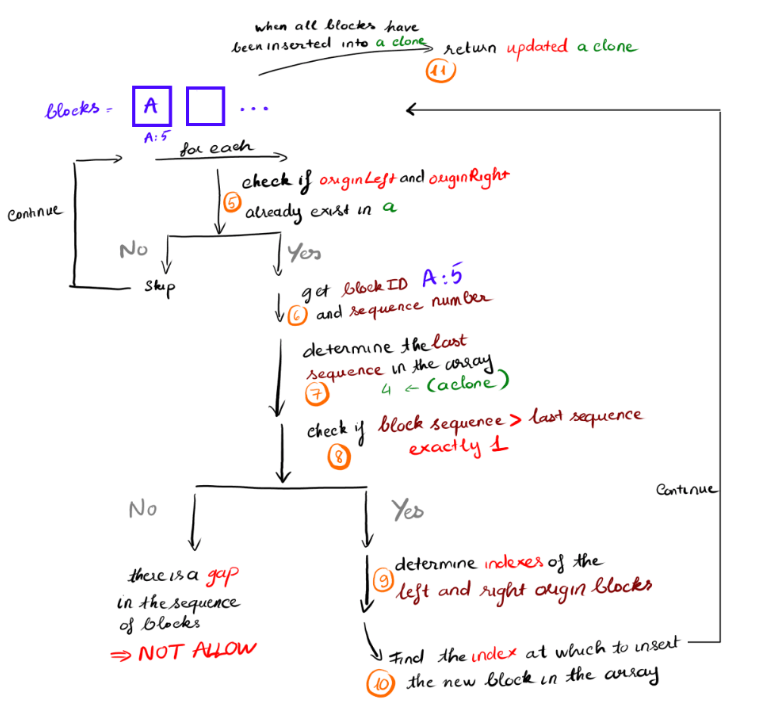 when all blocks have
been inserted into a clone
return updated a clone
11
blocks =
A
...
A:5
for each
check if originLeft and originRight
5
already exist in a
Continue
No
Yes
Skip
get block ID A:5
6 and sequence number
determine the last
sequence in the array
7
4 ← (a clone)
check if block sequence > last sequence
exactly 1
8
No
Yes
Continue
there is a gap
in the sequence
of blocks
⇒ NOT ALLOW
determine indexes of the
9
left and right origin blocks
Find the index at which to insert
10
the new block in the array